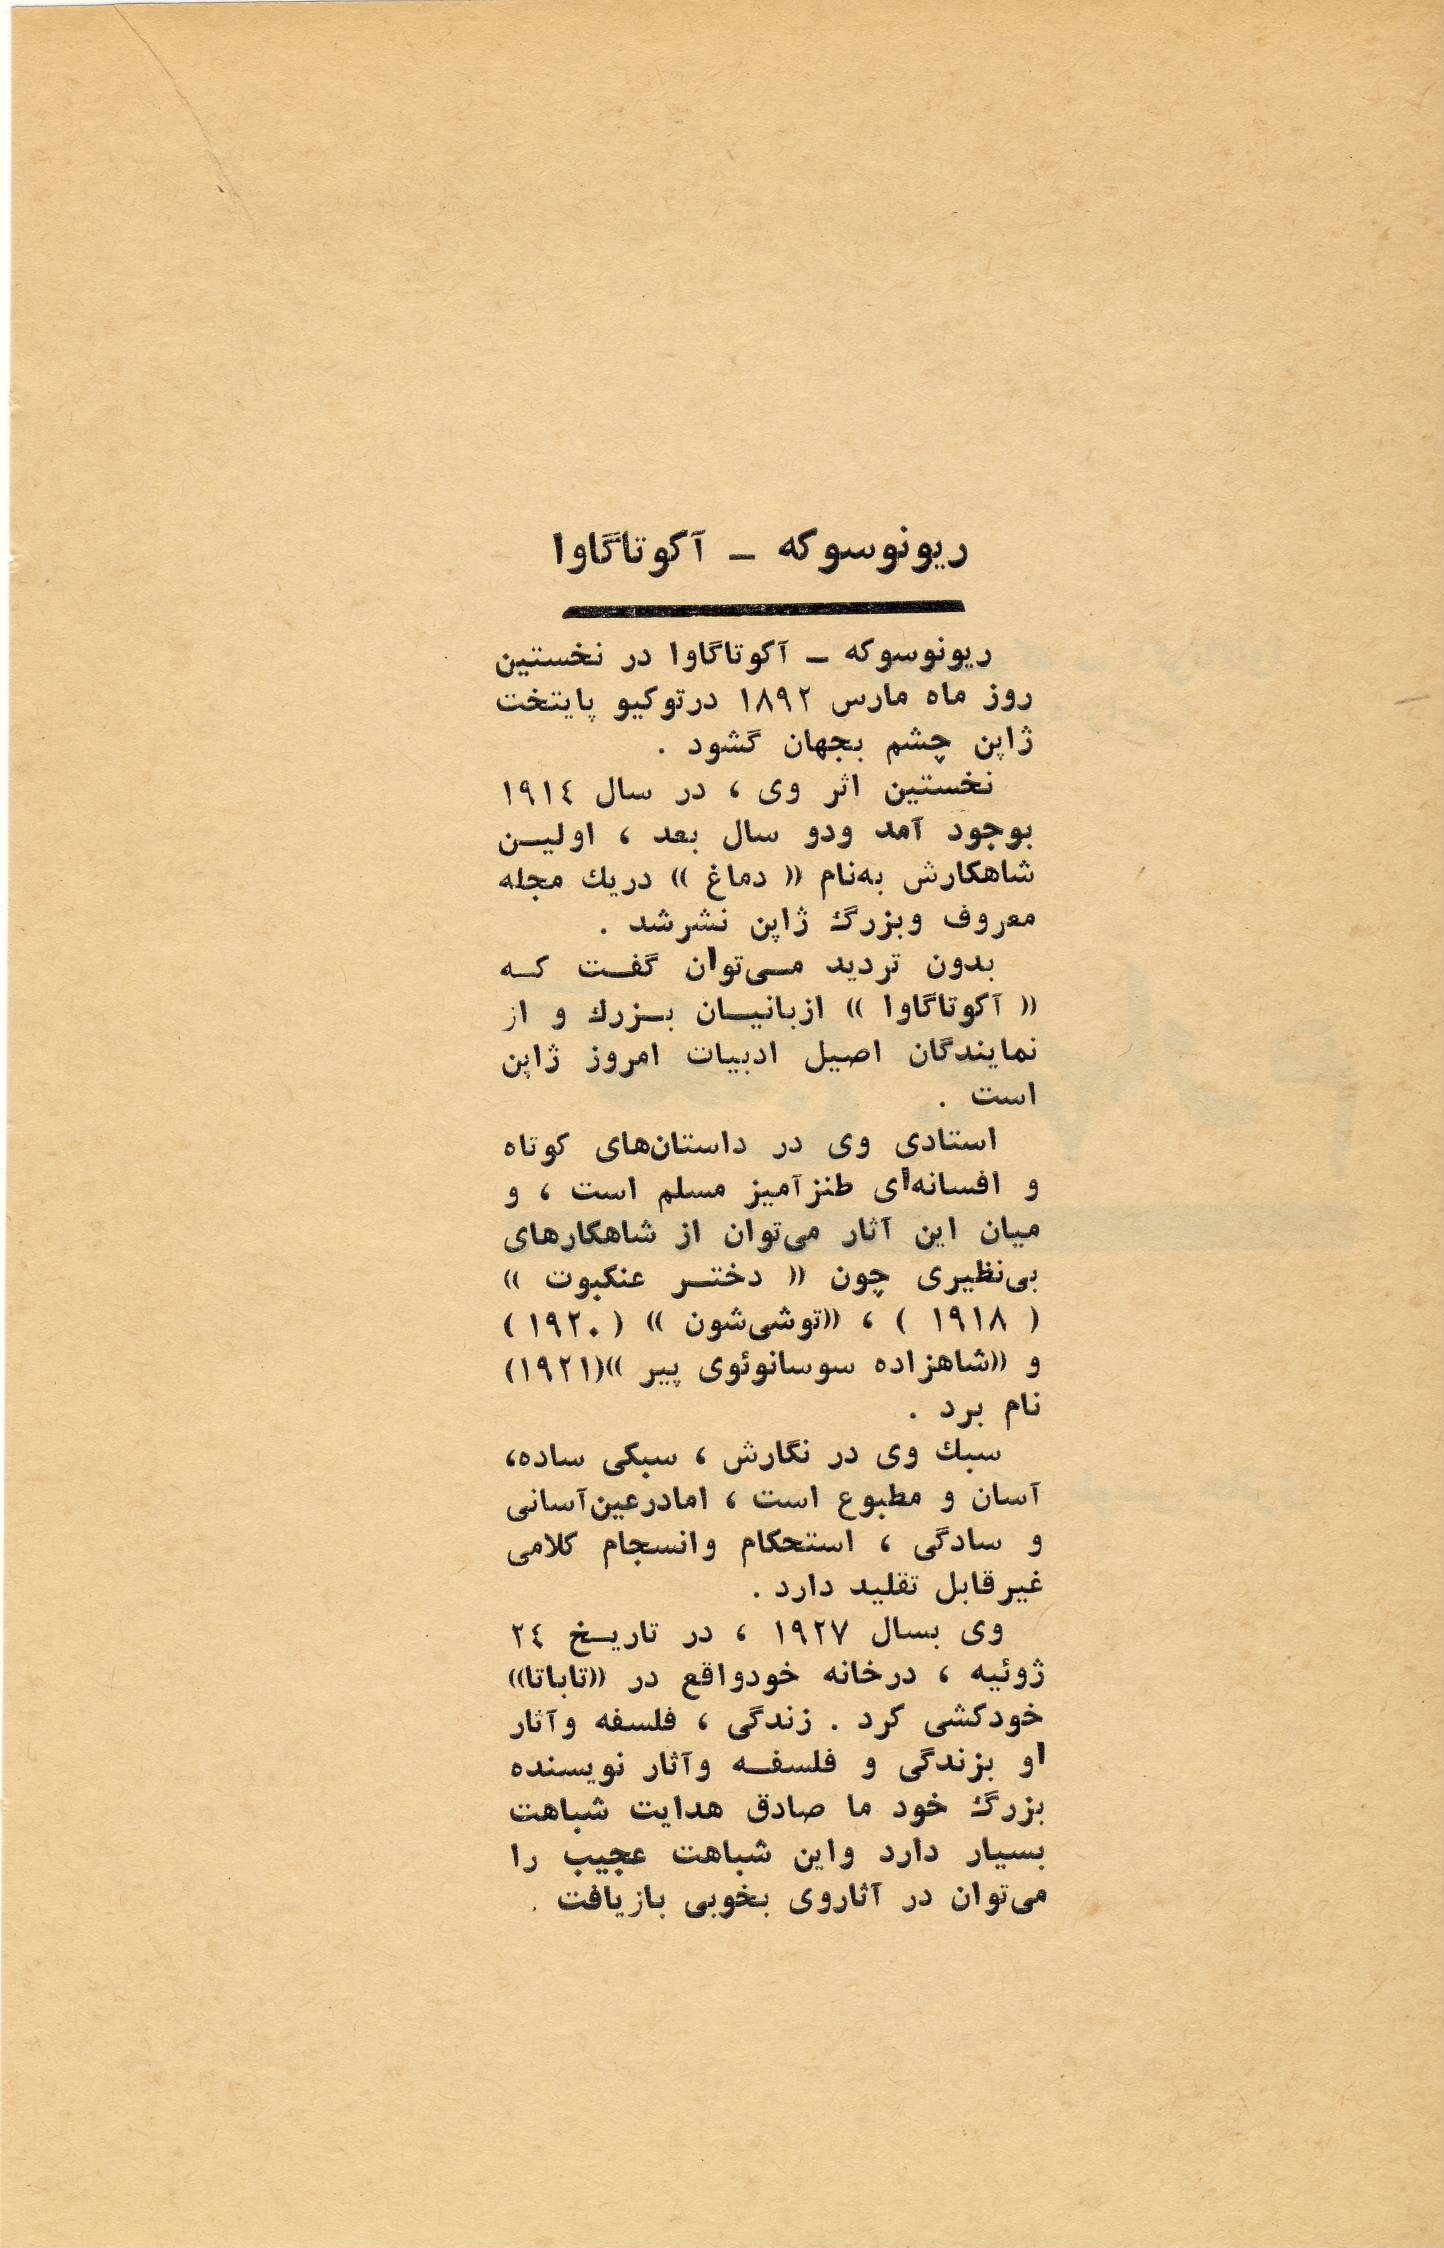 ریونوسوکه ــ آکوتاگاوا
ریونوسوکه ــ آکوتاگاوا در نخستین
روز ماه مارس ۱۸۹۲ درتوکیو پایتخت
ژاپن چشم بجهان گشود .
نخستین اثر وی ، در سال ۱۹۱٤
بوجود آمد ودو سال بعد ، اولیــن
شاهکارش به‌نام « دماغ » دریك مجله
معروف وبزرگ ژاپن نشرشد .
بدون تردید مــی‌توان گفــت کــه
« آکوتاگاوا » ازبانیــان بــزرك و از
نمایندگان اصیل ادبیات امروز ژاپن
است .
استادی وی در داستان‌های کوتاه
و افسانه‌ای طنزآمیز مسلم است ، و
میان این آثار می‌توان از شاهکارهای
بی‌نظیری چون « دختــر عنکبوت »
( ۱۹۱۸ ) ، «توشی‌شون » ( ۱۹۲۰ )
و «شاهزاده سوسانوئوی پیر »(۱۹۲۱)
نام برد .
سبك وی در نگارش ، سبکی ساده،
آسان و مطبوع است ، امادرعین‌آسانی
و سادگی ، استحکام وانسجام کلامی
غیرقابل تقلید دارد .
وی بسال ۱۹۲۷ ، در تاریــخ ۲٤
ژوئیه ، درخانه خودواقع در «تاباتا»
خودکشی کرد . زندگی ، فلسفه وآثار
او بزندگی و فلسفــه وآثار نویسنده
بزرگ خود ما صادق هدایت شباهت
بسیار دارد واین شباهت عجیب را
می‌توان در آثاروی بخوبی بازیافت .